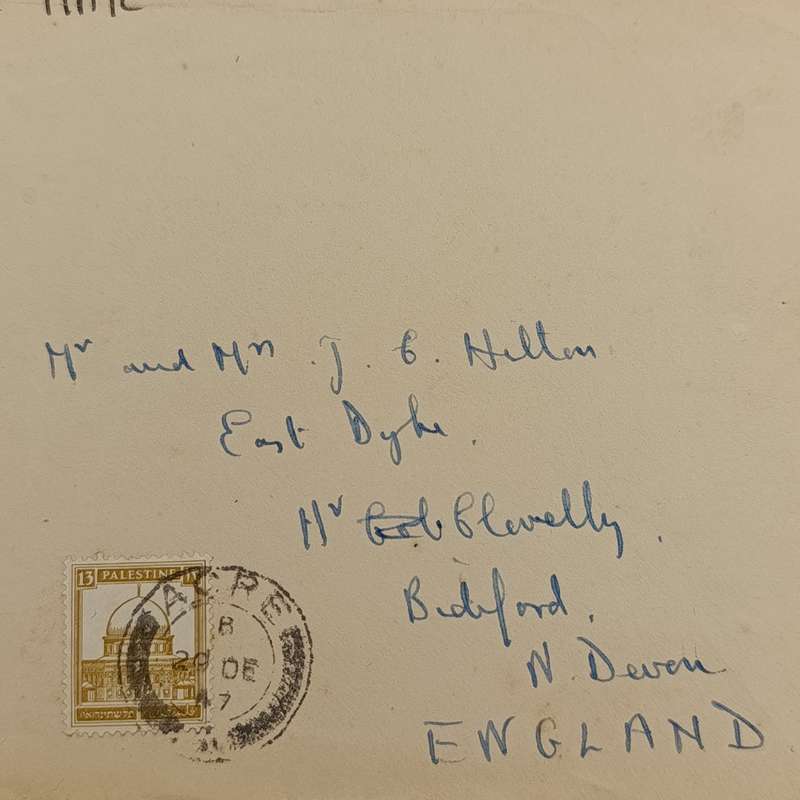 Mr and Mrs J. C. Hilton
East Dyke.
Nr Clovelly.
Bideford.
N. Devon
ENGLAND
13 PALESTINE
ACRE
B
20 DE
47